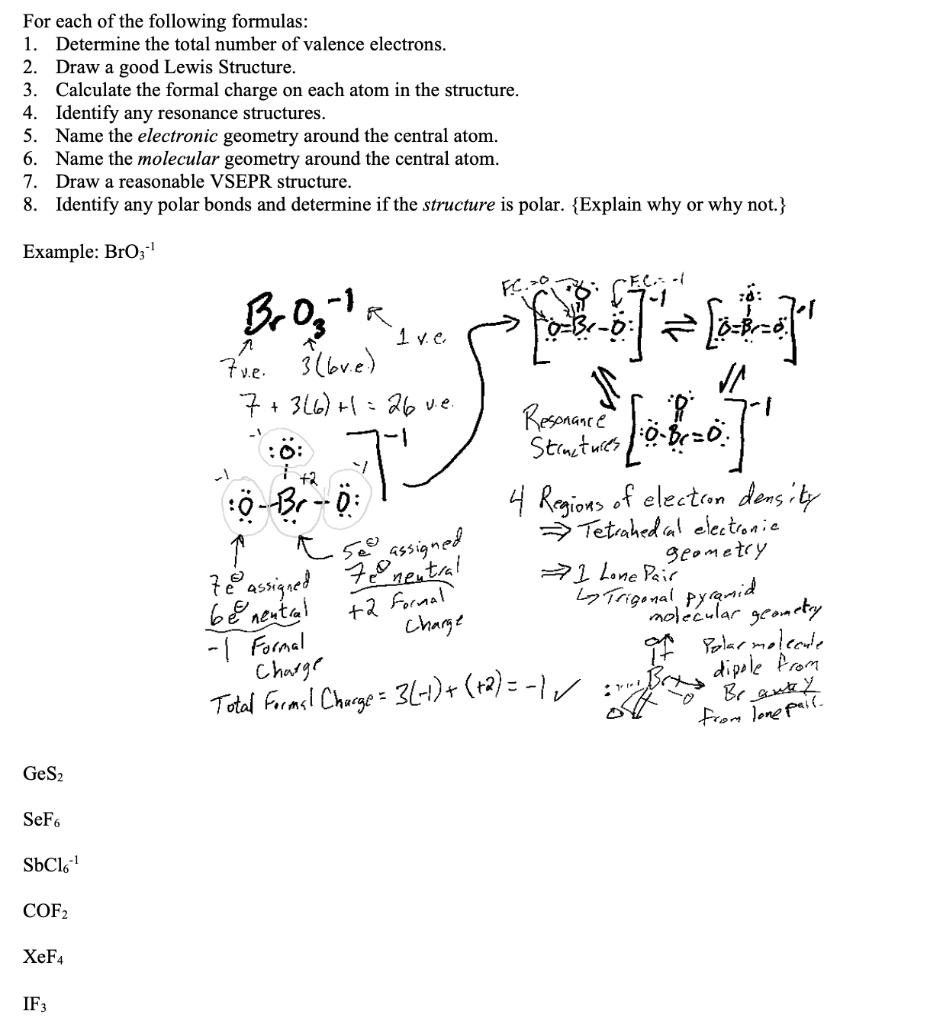 For each of the following formulas:
1. Determine the total number of valence electrons.
2. Draw a good Lewis Structure.
3. Calculate the formal charge on each atom in the structure.
4. Identify any resonance structures.
5. Name the electronic geometry around the central atom.
6. Name the molecular geometry around the central atom.
7. Draw a reasonable VSEPR structure.
8. Identify any polar bonds and determine if the structure is polar. {Explain why or why not.}
Example: BrO₃⁻¹
BrO₃⁻¹
1 v.e.
7 v.e. 3(6v.e)
7 + 3(6) +1 = 26 v.e.
-1
:Ö:
-1 +2 -1
:Ö--Br--Ö: -1
7e⊖ assigned
6e⊖ neutral
-1 Formal
Charge
5e⊖ assigned
7e⊖ neutral
+2 Formal
Charge
Total Formal Charge = 3(-1) + (+2) = -1 ✓
F.C.=0 F.C.=-1
[Ö=Br-Ö:]-1 ⇌ [Ö=Br=Ö]-1
:Ö:
Resonance
Structures
[:Ö-Br=Ö:]-1
4 Regions of electron density
⇒ Tetrahedral electronic
geometry
⇒ 1 Lone Pair
↳ Trigonal pyramid
molecular geometry
Polar molecule
dipole from
Br away
from lone pair.
Br
O
GeS₂
SeF₆
SbCl₆⁻¹
COF₂
XeF₄
IF₃